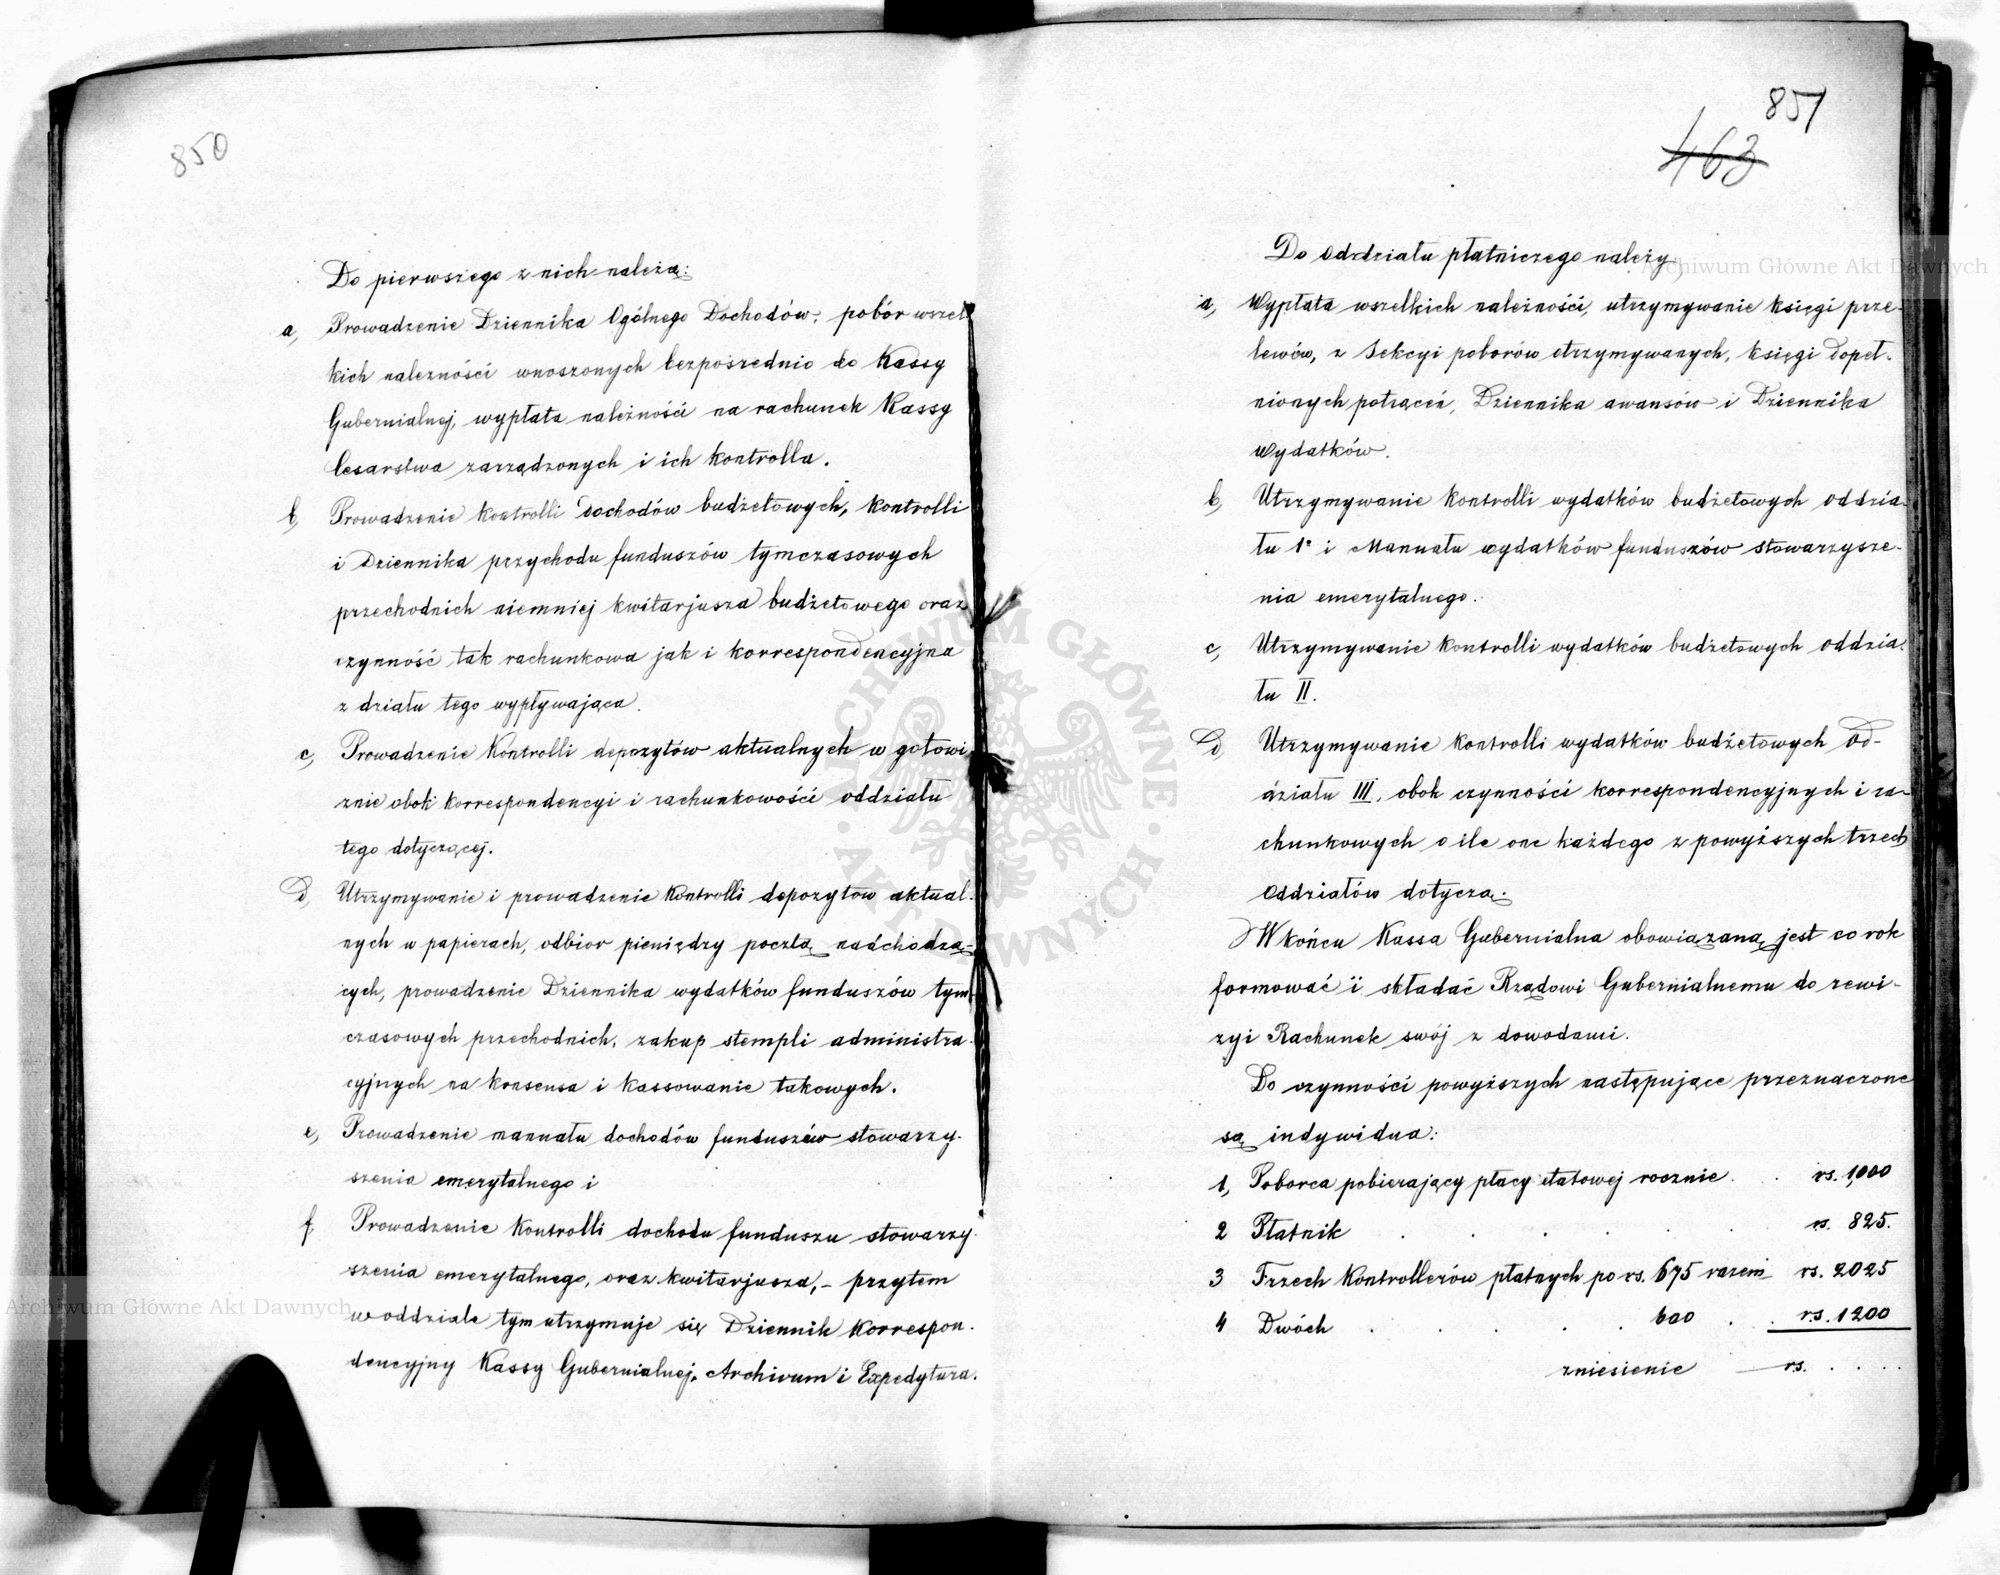 850
Do pierwszego z nich należą:
a, Prowadzenie Dziennika Ogólnego Dochodów, pobór wszel
kich należności wnoszonych bezpośrednio do Kassy
Gubernialnej, wypłata należności na rachunek Kassy
Cesarstwa zarządzonych i ich kontrolla.
b, Prowadzenie kontrolli dochodów budżetowych, kontrolli
i Dziennika przychodu funduszów tymczasowych
przechodnich niemniej kwitarjusza budżetowego oraz
czynność tak rachunkowa jak i korrespondencyjna
z działu tego wypływająca.
c, Prowadzenie Kontrolli depozytów aktualnych w gotowi
znie obok korrespondencyi i rachunkowości oddziału
tego dotyczącej.
d, Utrzymywanie i prowadzenie kontrolli depozytow aktual-
nych w papierach, odbior pieniędzy pocztą nadchodzą-
cych, prowadzenie Dziennika wydatków funduszów tym
czasowych przechodnich, zakup stempli administra-
cyjnych na konsensa i kassowanie takowych.
e, Prowadzenie manuału dochodów funduszów stowarzy-
szenia emerytalnego i
f. Prowadzenie Kontrolli dochodu funduszu stowarzy-
szenia emerytalnego, oraz kwitarjusza, - przytem
w oddziale tym utrzymuje się Dziennik Korrespon-
dencyjny Kassy Gubernialnej, Archivum i Expedytura.
851
463
Do oddziału płatniczego należy
a, Wypłata wszelkich należności, utrzymywanie księgi prze-
lewów, z Sekcyi poborów otrzymywanych, księgi dopeł-
nionych potrąceń, Dziennika awansów i Dziennika
wydatków.
b, Utrzymywanie kontrolli wydatków budżetowych oddzia-
łu 1º i Manuału wydatków funduszów stowarzysze-
nia emerytalnego.
c, Utrzymywanie kontrolli wydatków budżetowych oddzia-
łu II.
d, Utrzymywanie kontrolli wydatków budżetowych od-
działu III, obok czynności korrespondencyjnych i ra-
chunkowych o ile one każdego z powyższych trzech
oddziałów dotyczą.
W końcu Kassa Gubernialna obowiązaną jest co rok
formować i składać Rządowi Gubernialnemu do rewi-
zyi Rachunek swój z dowodami.
Do czynności powyższych następujące przeznaczone
są indywidua:
1, Poborca pobierający płacy etatowej rocznie . . rs. 1,000
2 Płatnik . . . . . rs. 825.
3 Trzech Kontrollerów płatnych po rs. 675 razem rs. 2025
4 Dwóch . . . . . 600 . . rs. 1200
zniesienie — rs. . . . .
Archiwum Główne Akt Dawnych
Archiwum Główne Akt Dawnych
ARCHIWUM GŁÓWNE · AKT DAWNYCH ·